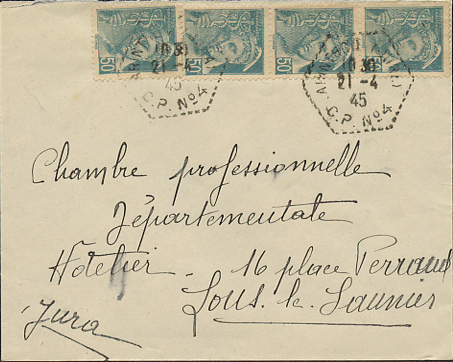 50 50 50 50
10 30
21-4
45
C.P. N°4
10 30
21-4
45
C.P. N°4
Chambre professionnelle
Départementale
Hôtelier - 16 place Perraud
Lons-le-Saunier
Jura